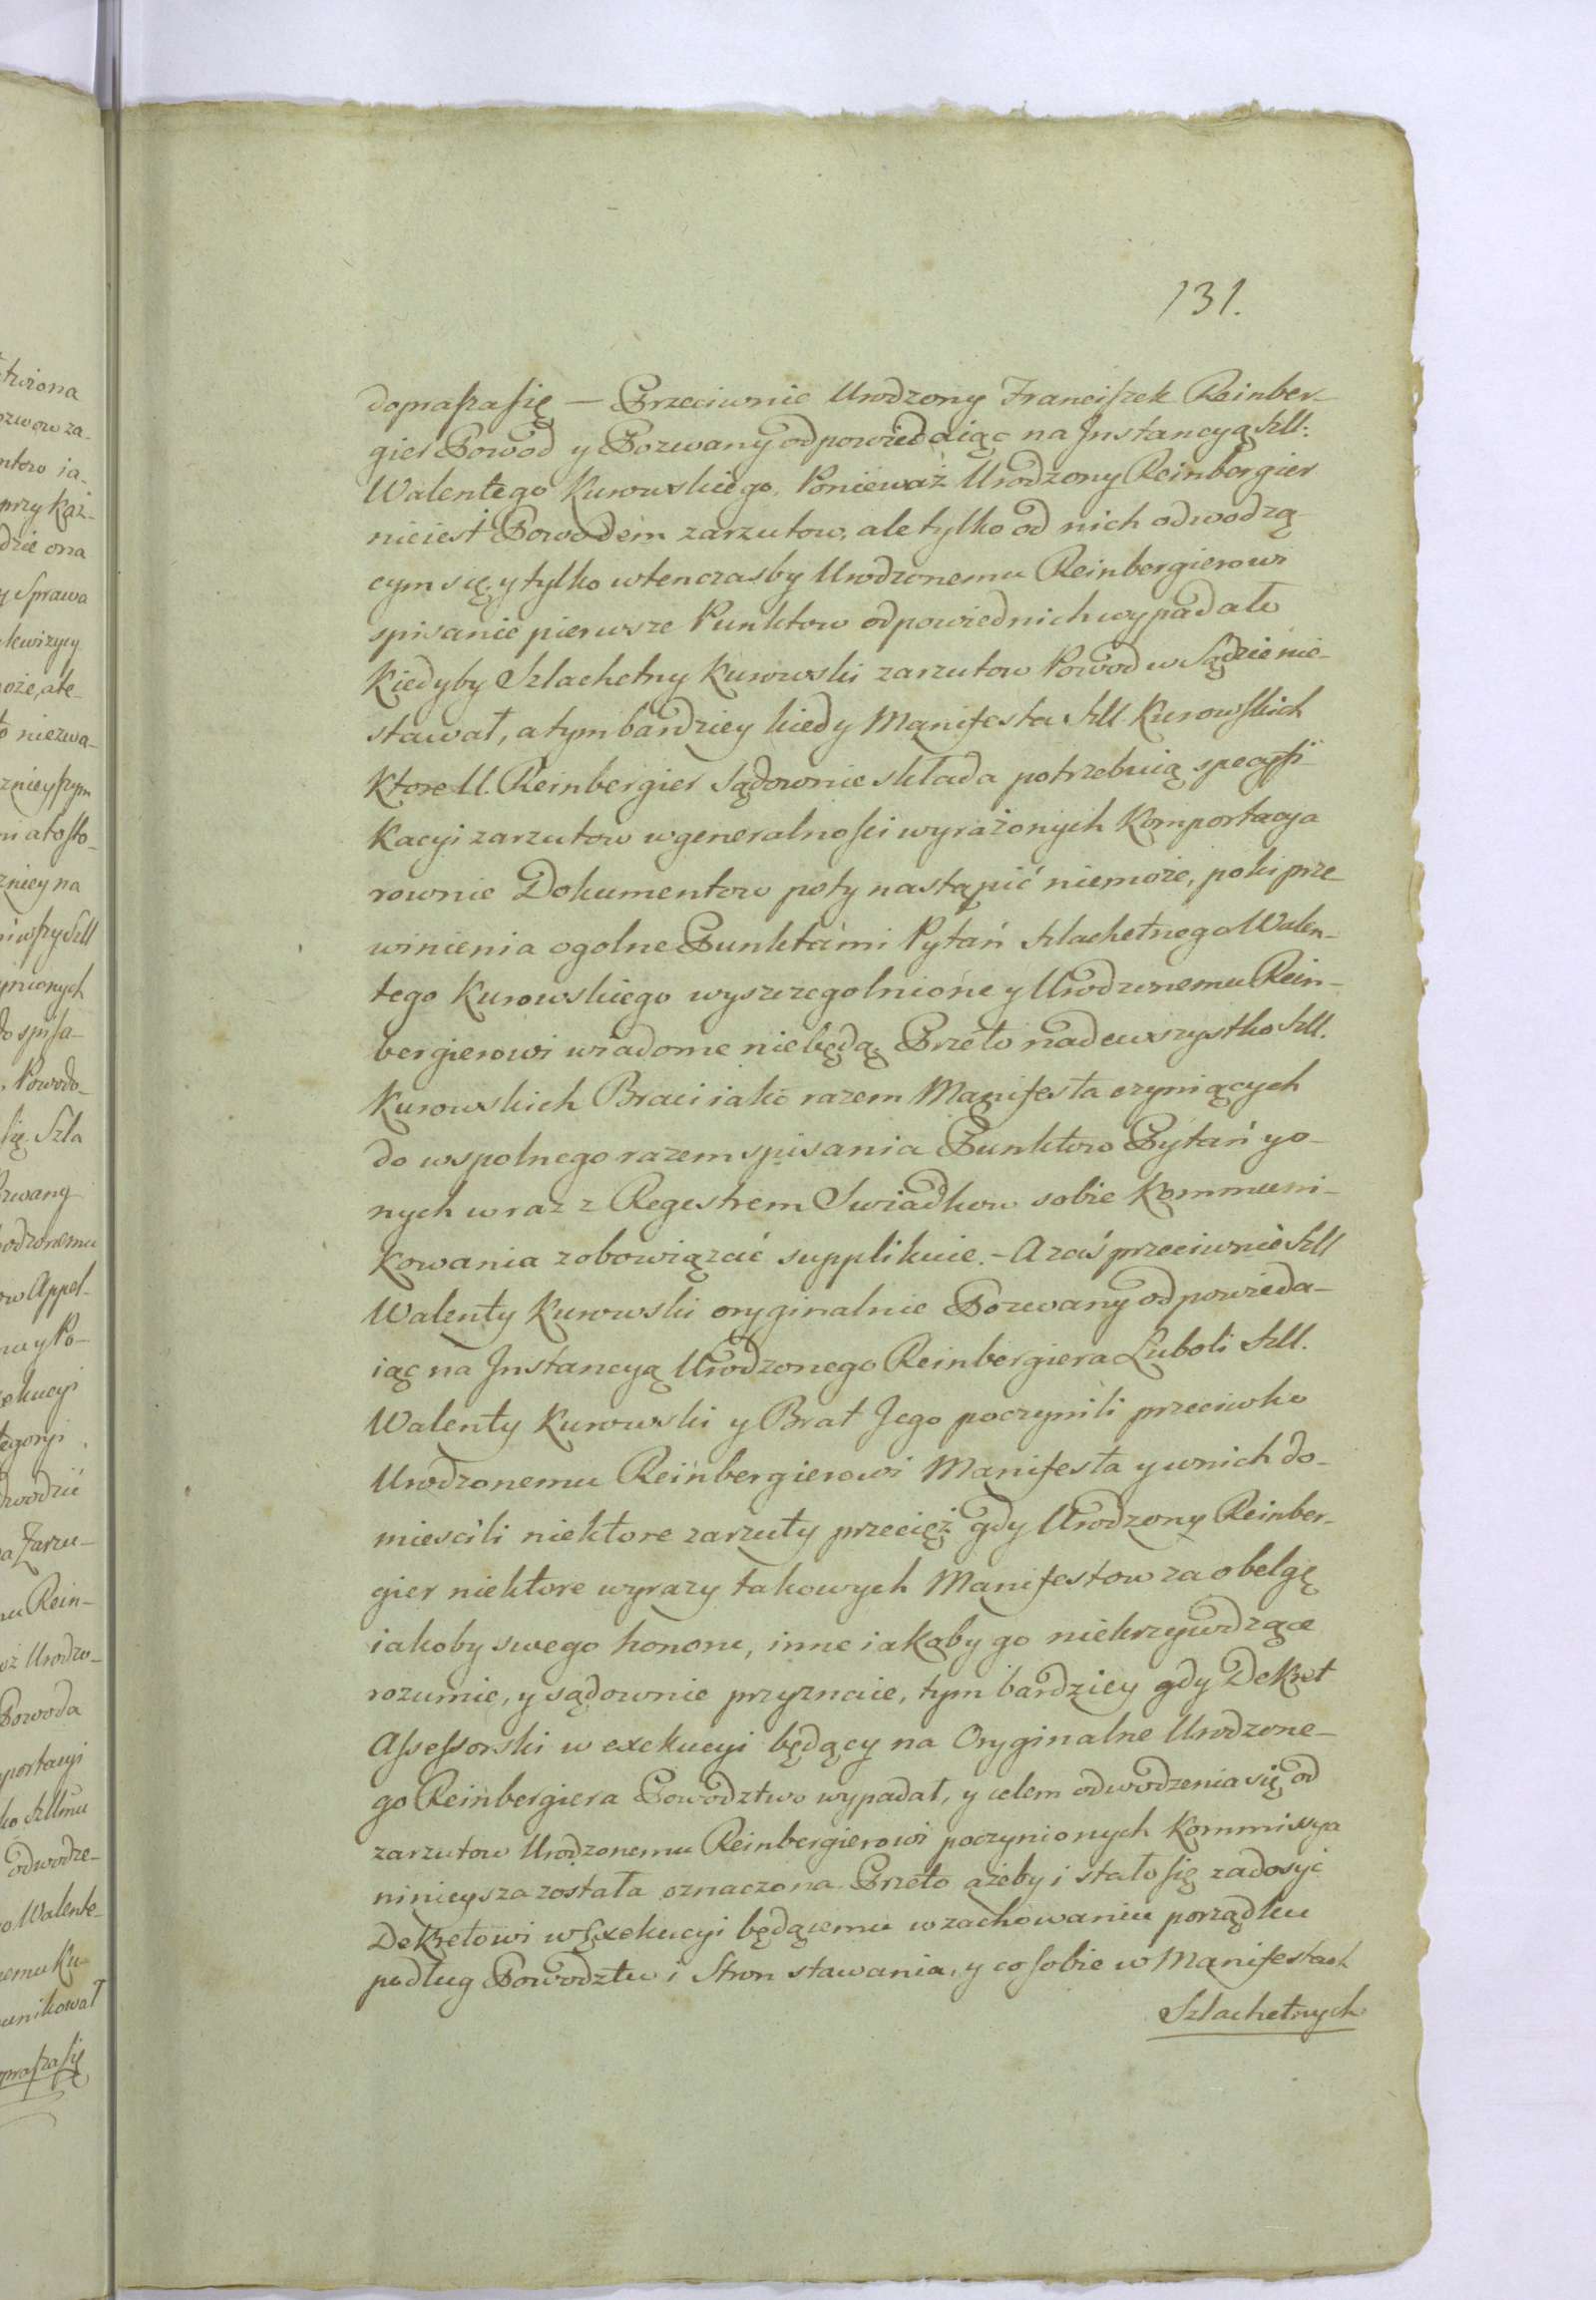 131.
doprasza się — Przeciwnie Urodzony Franciszek Reinber-
gier Powod y Pozwany odpowiedaiąc na Instancyą Szll:
Walentego Kurowskiego, Ponieważ Urodzony Reinbergier
nieiest Powodem zarzutow, ale tylko od nich odwodzą-
cym się, y tylko wtenczasby Urodzonemu Reinbergierowi
spisanie pierwsze Punktow odpowiednich wypadało
Kiedyby Szlachetny Kurowski zarzutow Powod w Sądzie nie-
stawał, a tym bardziey kiedy Manifesta Szll. Kurowskich
Ktore U. Reinbergier Sądownie składa potrzebuią specyfi-
kacyi zarzutow w generalności wyrażonych Komportacya
rownie Dokumentow poty nastąpić niemoże, poki prze-
winienia ogolne Punktami Pytań Szlachetnego Walen-
tego Kurowskiego wyszczegolnione y Urodzonemu Rein-
bergierowi wiadome niebędą. Przeto nadewszystko Szll.
Kurowskich Braci iako razem Manifesta czyniących
do wspolnego razem spisania Punktow Pytań y o-
nych wraz z Regestrem Swiadkow sobie Kommuni-
kowania zobowiązać supplikuie. - A zaś przeciwnie Szll
Walenty Kurowski oryginalnie Pozwany odpowieda-
iąc na Instancyą Urodzonego Reinbergiera Luboli Szll.
Walenty Kurowski y Brat Jego poczynili przeciwko
Urodzonemu Reinbergierowi Manifesta y w nich do-
mieścili niektore zarzuty przecięż gdy Urodzony Reinber-
gier niektore wyrazy takowych Manifestow za obelgę
iakoby swego honoru, inne iakoby go niekrzywdzące
rozumie, y sądownie przyznaie, tym bardziey gdy Dekret
Assessorski w exekucyi będący na Oryginalne Urodzone-
go Reinbergiera Powodztwo wypadał, y celem odwodzenia się od
zarzutow Urodzonemu Reinbergierowi poczynionych Kommissya
ninieysza została oznaczona Przeto ażeby i stało się zadosyć
Dekretowi w Exekucyi będącemu w zachowaniu porządku
podług Powodztw i Stron stawania, y co sobie w Manifestach
Szlachetnych